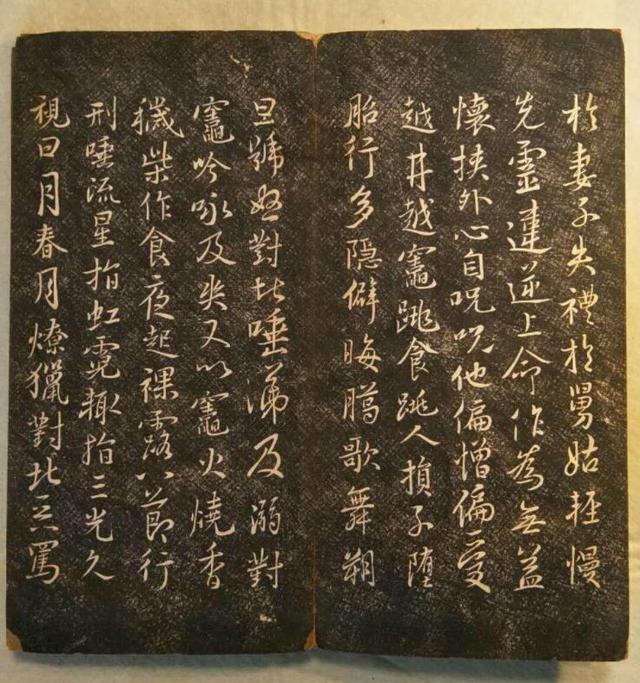 於妻子失禮於舅姑輕慢
先靈違逆上命作為無益
懷挾外心自呪呪他偏憎偏愛
越井越竈跳食跳人損子墮
胎行多隱僻晦臈歌舞朔
旦號怒對北唾涕及溺對
竈吟咏及哭又以竈火燒香
穢柴作食夜起裸露八節行
刑唾流星指虹霓輙指三光久
視日月春月燎獵對北惡罵